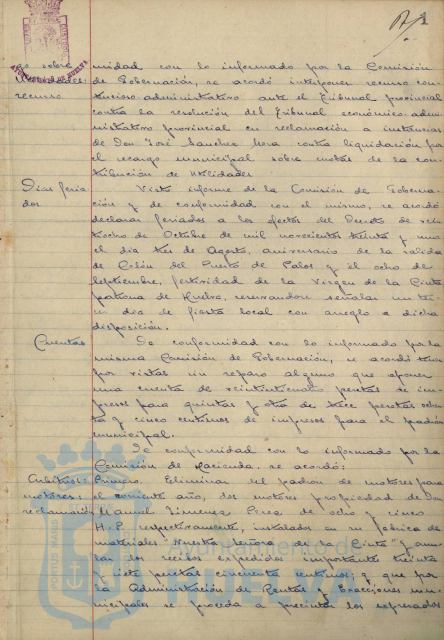 go sobre
Utilidades:
recurso
midad con lo informado por la Comisión
de Gobernación, se acordó interponer recurso con-
tencioso-administrativo ante el Tribunal provincial
contra la resolución del Tribunal económico-admi-
nistrativo provincial en reclamación a instancias
de Don José Sanchez Mora contra liquidación por
el recargo municipal sobre cuotas de la con-
tribución de Utilidades
Dias feria
dos
Visto informe de la Comisión de Goberna-
ción y de conformidad con el mismo, se acordó
declarar feriados a los efectos del Decreto de vein-
tiocho de Octubre de mil novecientos treinta y uno
el dia tres de Agosto, aniversario de la salida
de Colón del Puerto de Palos y el ocho de
Septiembre, festividad de la Virgen de la Cinta
patrona de Huelva, reservandose señalar un ter-
cer dia de fiesta local con arreglo a dicha
disposición.
Cuentas
De conformidad con lo informado por la
misma Comisión de Gobernación, se acordó
por vistas sin reparo alguno que oponer
una cuenta de veinticuatro pesetas de im-
presos para quintas y otra de trece pesetas ochen-
ta y cinco centimos de impresos para el padrón
municipal.
De conformidad con lo informado por la
Comisión de Hacienda, se acordó:
Arbitrios:
motores:
reclamación
Primero. Eliminar del padron de motores para
el corriente año, dos motores propiedad de Don
Manuel Jimenez Perea de ocho y cinco
H.P. respectivamente, instalados en su fabrica de
materiales "Nuestra Señora de la Cinta" y anu-
lar los recibos expedidos importantes treinta
y siete pesetas cincuenta centimos; y que por
la Administración de Rentas y Exacciones mu-
nicipales se proceda a precintar los expresados
Ayuntamiento de
HUELVA